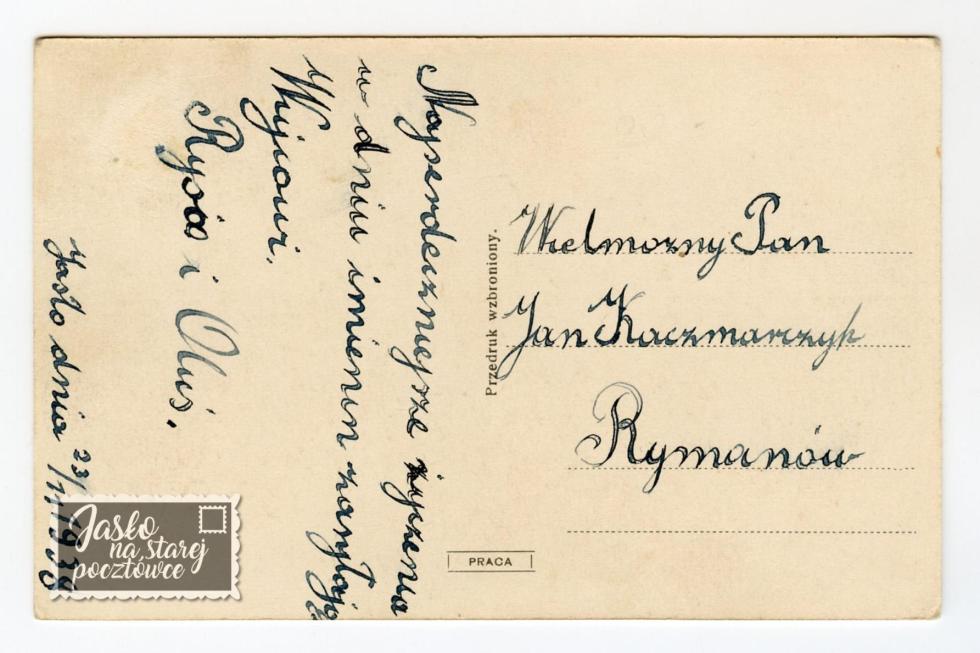 Najserdeczniejsze życzenia
w dniu imienin
Wujowi.
Rysia i Oluś.
Jasło dnia 23/11 1938
Wielmozny Pan
Jan Kaczmarczyk
Rymanów
Przedruk wzbroniony.
PRACA
Jasło
na starej
pocztówce